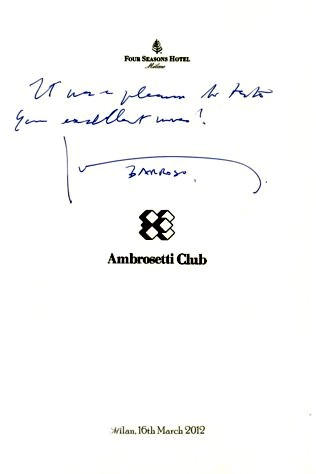 FOUR SEASONS HOTEL
Milano
It was a pleasure to taste
your excellent wines!
BARROSO.
Ambrosetti Club
Milan, 16th March 2012